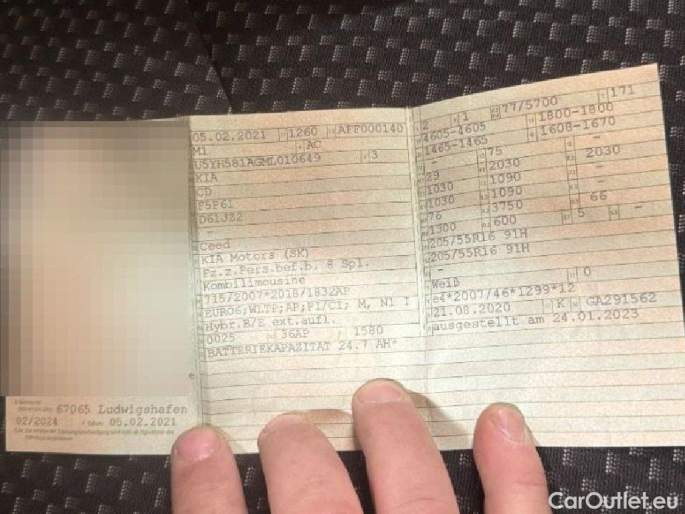 05.02.2021 1260 AFF000140
M1 AC
U5YH581AGML010649 3
KIA
CD
F5P61
D61JZ2
-
Ceed
KIA Motors (SK)
Fz.z.Pers.bef.b. 8 Spl.
Kombilimousine
715/2007*2018/1832AP
EURO6;WLTP;AP;PI/CI; M, N1 I
Hybr.B/E ext.aufl.
0025 36AP 1580
BATTERIEKAPAZITÄT 24.7 AH*
67065 Ludwigshafen
02/2024 05.02.2021
2 1 77/5700 171
4605-4605 1800-1800
1465-1465 1608-1670
- 75 -
29 2030 2030
1030 1090 -
1030 1090 -
76 3750 66
1300 600 5 -
205/55R16 91H
205/55R16 91H
-
Weiß 0
e4*2007/46*1299*12
21.08.2020 K GA291562
ausgestellt am 24.01.2023
CarOutlet.eu